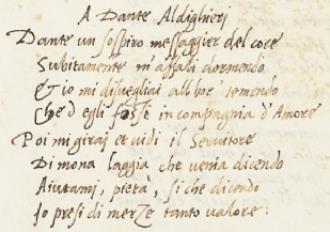 A Dante Aldighierj
Dante un sospiro messaggier del core
Subitamente m'assalì dormendo
Et io mi disuegliai all hor temendo
Che d egli fosse in compagnia d'Amore
Poi mi giraj et uidi il Seruitore
Di mona laggia che uenia dicendo
Aiutamj, pietà, si che dicendo
Io presi di merZe tanto ualore: